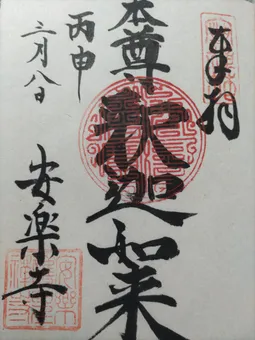 奉拝
本尊
釈迦如来
丙申
二月八日
安楽寺